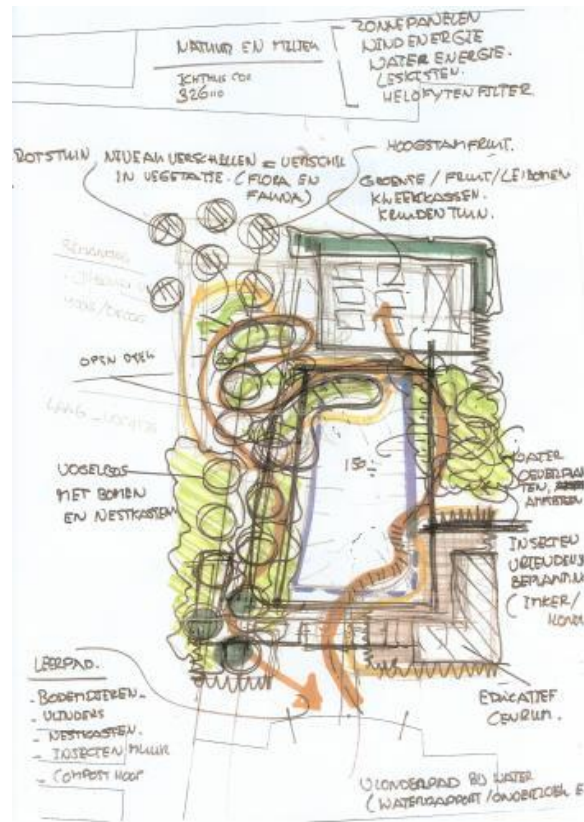 NATUUR EN MILIEU
ICHTHUS COL
ZONNEPANELEN
WINDENERGIE
WATER ENERGIE.
LESKISTEN.
HELOFYTENFILTER
ROTSTUIN
NIVEAU VERSCHILLEN = VERSCHIL
IN VEGETATIE. (FLORA EN
FAUNA)
HOOGSTAMFRUIT.
GROENTE / FRUIT / LEIBOMEN
KWEEKKASSEN.
KRUIDENTUIN.
OPEN PLEK
VOGELBOS
MET BOMEN
EN NESTKASTEN
150
WATER
OEVERPLAN
TEN,
INSECTEN
VRIENDELIJK
BEPLANTING
(IMKER/
EDUCATIEF
CENRUM.
LEERPAD.
- BODEMDIEREN -
- VLINDERS
- NESTKASTEN.
- INSECTEN MUUR
- COMPOST HOOP
VLONDERPAD BIJ WATER
(WATERRAPPORT / ONDERZOEK E